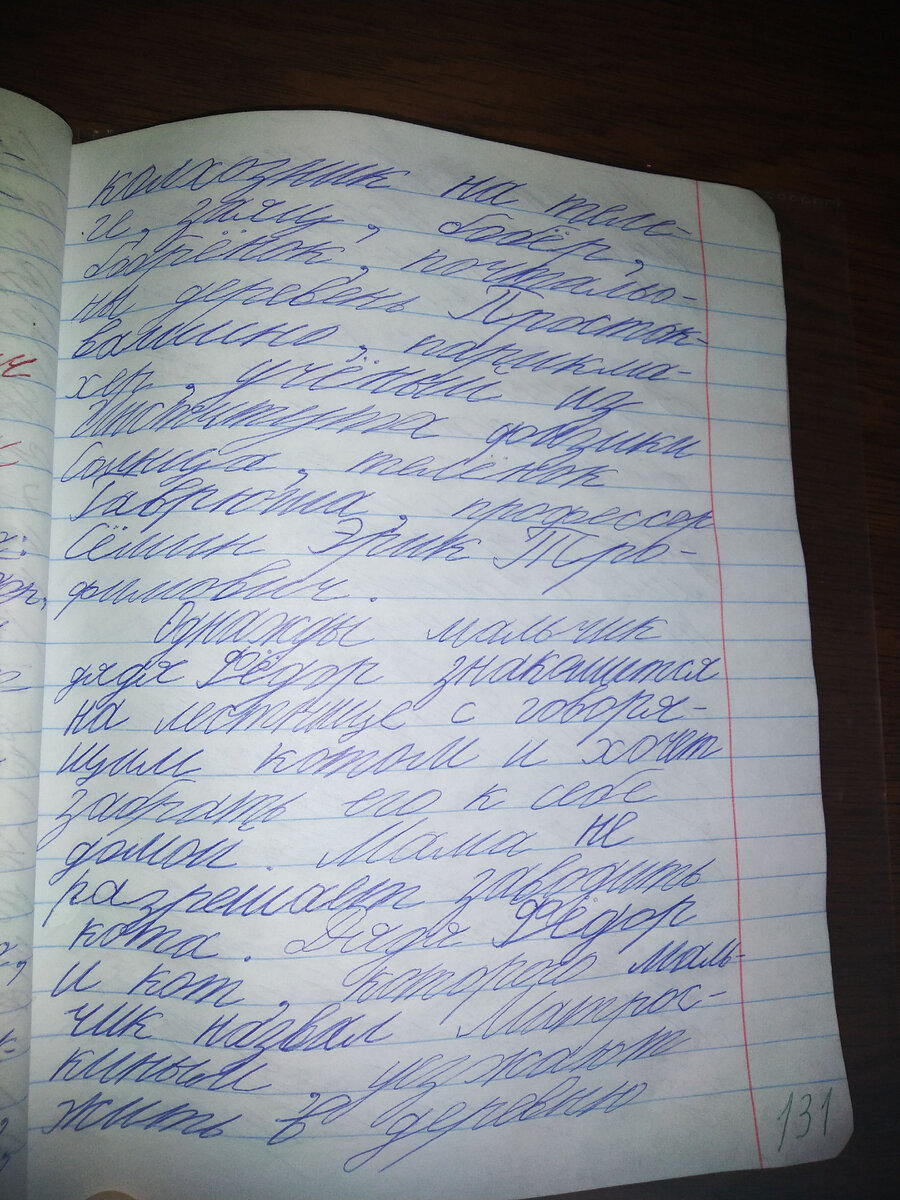 колхозник на теле-
ге, заяц, бобёр,
бобрёнок, почтальо-
ны деревень Просток-
вашино, парикма-
хер, учёный из
Института физики
Солнца, телёнок
Гаврюша, профессор
Сёмин Эрик Тро-
фимович.
Однажды мальчик
дядя Фёдор знакомится
на лестнице с говоря-
щим котом и хочет
забрать его к себе
домой. Мама не
разрешает заводить
кота. Дядя Фёдор
и кот, которого маль-
чик назвал Матрос-
киным, уезжают
жить в деревню
131